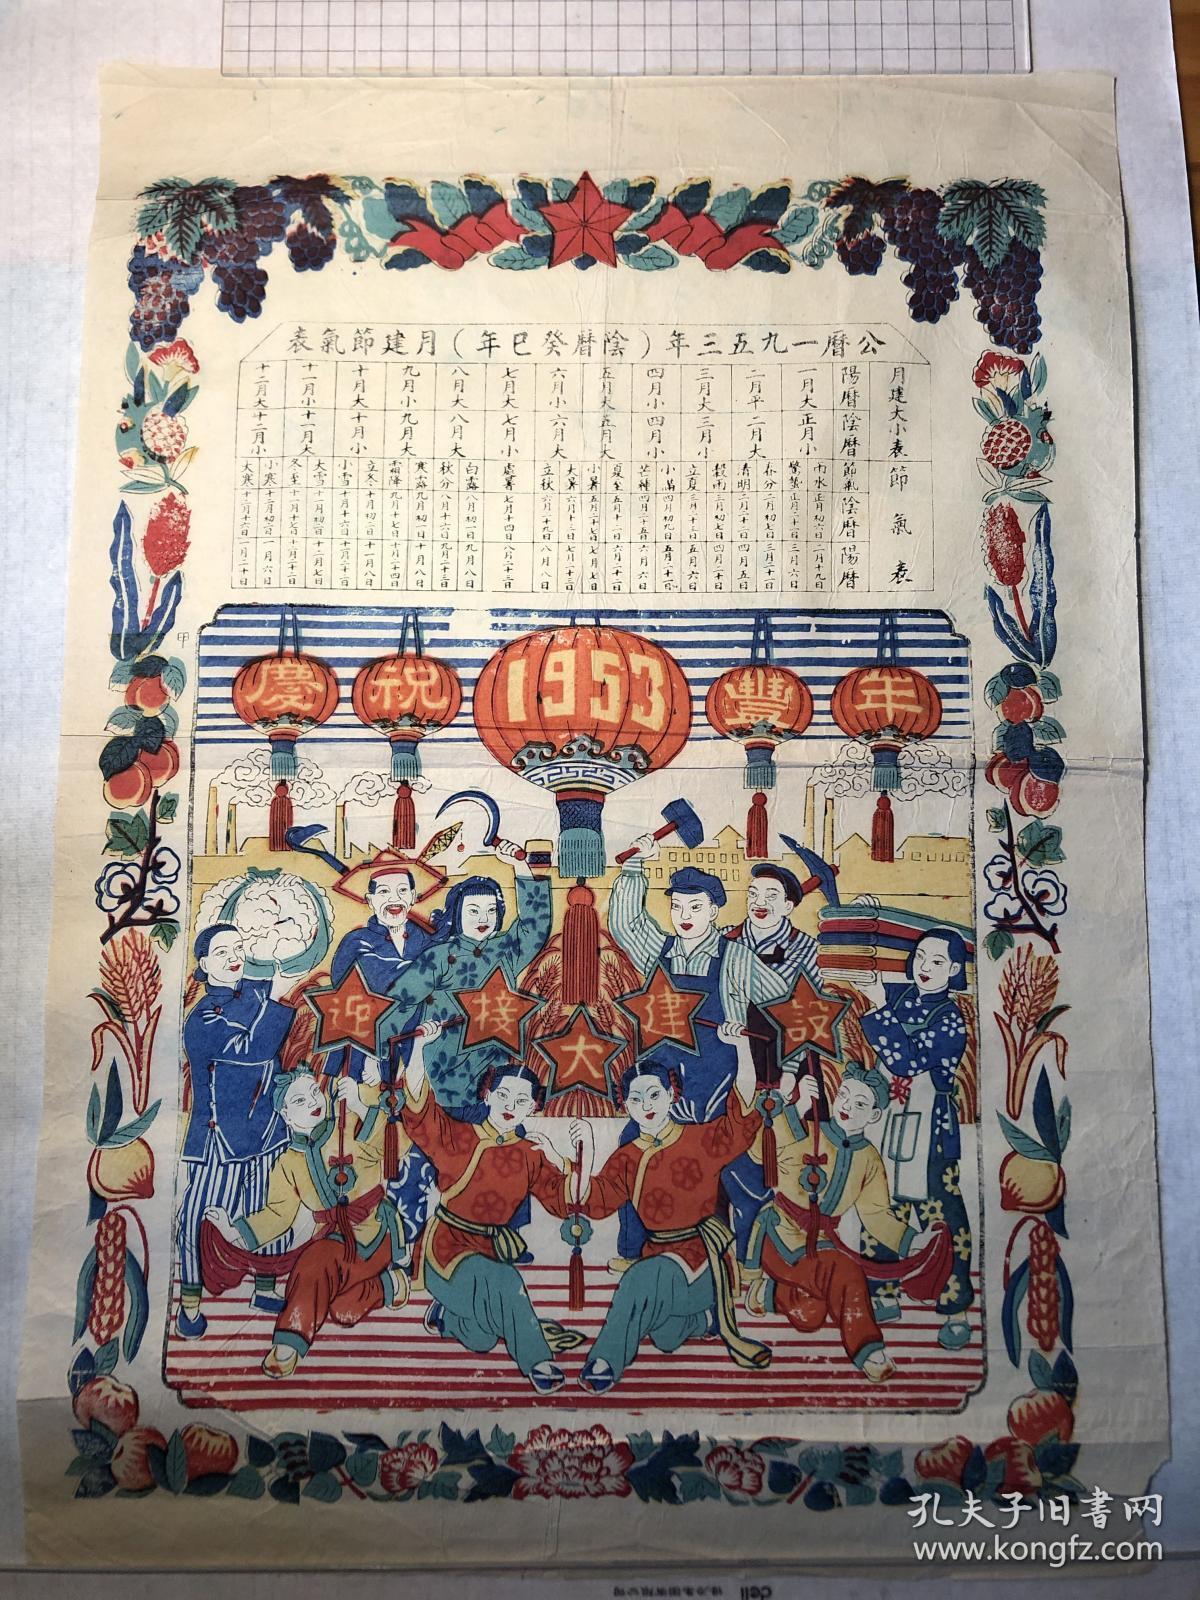 公曆一九五三年（陰曆癸巳年）月建節氣表
月建大小表 節氣表
陽曆 陰曆 節氣 陰曆 陽曆
一月大 正月小
雨水 正月初六日 二月十九日
驚蟄 正月二十一日 三月六日
二月平 二月大
春分 二月初七日 三月二十一日
清明 二月二十二日 四月五日
三月大 三月小
穀雨 三月初七日 四月二十日
立夏 三月二十三日 五月六日
四月小 四月小
小滿 四月初九日 五月二十一日
芒種 四月二十五日 六月六日
五月大 五月大
夏至 五月十二日 六月二十二日
小暑 五月二十七日 七月七日
六月小 六月大
大暑 六月十三日 七月二十三日
立秋 六月二十九日 八月八日
七月大 七月小
處暑 七月十四日 八月二十三日
八月大 八月大
白露 八月初一日 九月八日
秋分 八月十六日 九月二十三日
九月小 九月大
寒露 九月初一日 十月八日
霜降 九月十七日 十月二十四日
十月大 十月小
立冬 十月初二日 十一月八日
小雪 十月十六日 十一月二十二日
十一月小 十一月大
大雪 十一月初二日 十二月七日
冬至 十一月十七日 十二月二十二日
十二月大 十二月小
小寒 十二月初二日 一月六日
大寒 十二月十六日 一月二十日
甲
慶祝1953豐年
迎接大建設
孔夫子旧书网
www.kongfz.com